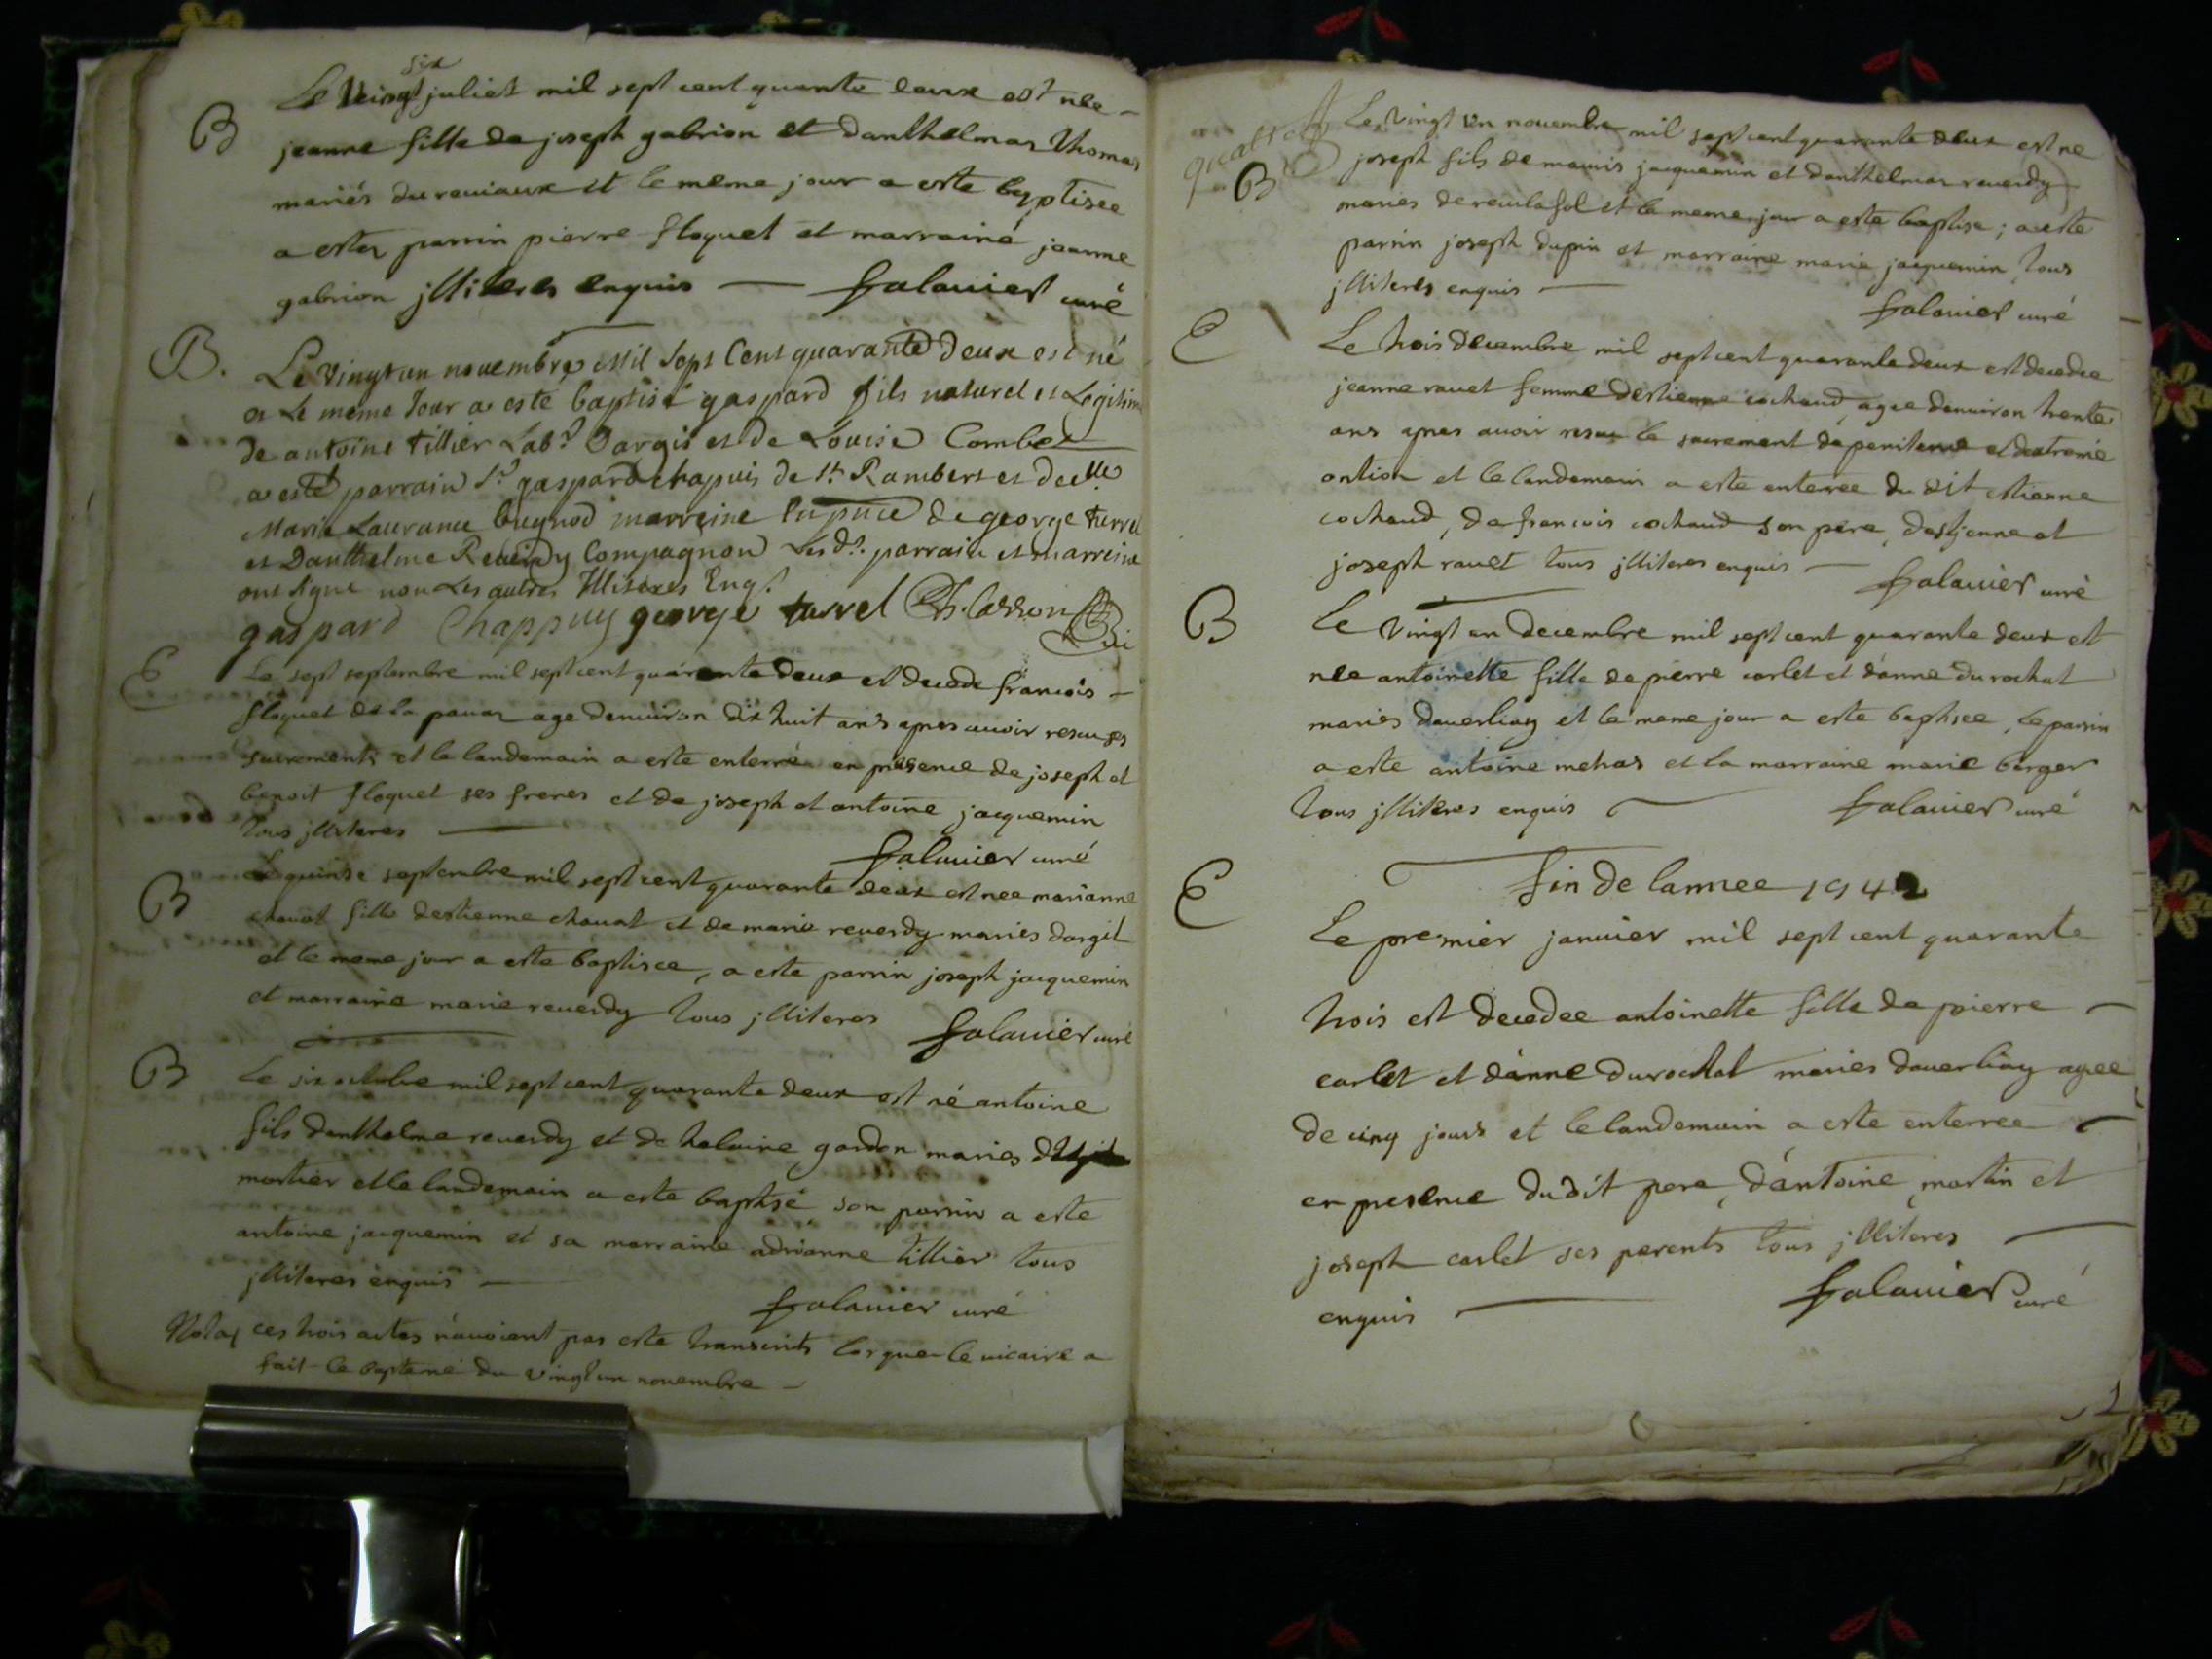 six
Le Vingt juliet mil sept cent quarante deux est née
B
jeanne fille de joseph gabrion et danthelmaz Thomaz
mariés du reviaux et le meme jour a esté baptisee
a estez parrin pierre floquet et marraine jeanne
gabrion jlliteres enquis — falavier curé
B.
Le Vingt un novembre Mil Sept Cent quarante Deux est né
et Le meme Jour a esté baptisé gaspard fils naturel et Legitime
De antoine tillier Lab.r Dargis et de Louise Combet
a esté parrain S.r gaspard chapuis de St. Rambert et de elle
Marie Laurance bugnod marreine en puce de george turrel
et Danthelme Reverdy Compagnon Les d.s parrain et marreine
ont signé non Les autres Illiteres Enq.s
gaspard Chappuy george turrel
E
Le sept septembre mil sept cent quarante deux est decede francois
floquet de la pavaz age denviron dix huit ans apres avoir resu ses
sacrements et le landemain a este enterré en presence de joseph et
benoit floquet ses freres et de joseph et antoine jacquemin
tous jlliteres — falavier curé
B
Le quinse septembre mil sept cent quarante deux est nee marianne
chavat fille destienne chavat et de marie reverdy maries dargil
et le meme jour a este baptisee, a este parrin joseph jacquemin
et marraine marie reverdy tous jlliteres falavier curé
B
Le six octobre mil sept cent quarante deux est né antoine
fils danthelme reverdy et de helaine gardon maries
mortier et le landemain a este baptisé son parrin a este
antoine jacquemin et sa marraine adrianne tillier tous
jlliteres enquis — falavier curé
Nota, ces trois actes n'avoient pas este transcrits lorque le vicaire a
fait le bapteme du vingt un novembre —
quatre
B
Le Vingt un novembre mil sept cent quarante deux est ne
joseph fils de mauris jacquemin et danthelmaz reverdy
maries de reculafol et le meme jour a este baptise; a este
parrin joseph dupin et marraine marie jacquemin tous
jlliteres enquis — falavier curé
E
Le trois decembre mil sept cent quarante deux est decedee
jeanne ravet femme destienne cochaud, agee denviron trente
ans apres avoir resu le sacrement de penitence et dextreme
ontion et le landemain a este enterree du dit estienne
cochaud, de francois cochaud son pere, destienne et
joseph ravet tous jlliteres enquis — falavier curé
B
Le Vingt un decembre mil sept cent quarante deux est
nee antoinette fille de pierre carlet et d'anne durochat
maries daverliaz et le meme jour a este baptisee, le parrin
a este antoine mehas et la marraine marie berger
tous jlliteres enquis falavier curé
fin de lannee 1742
E
Le premier janvier mil sept cent quarante
trois est decedee antoinette fille de pierre —
carlet et d'anne durochat maries daverliaz agee
de cinq jours et le landemain a este enterree
en presence dudit pere, d'antoine martin et
joseph carlet ses parents tous jlliteres —
enquis — falavier curé